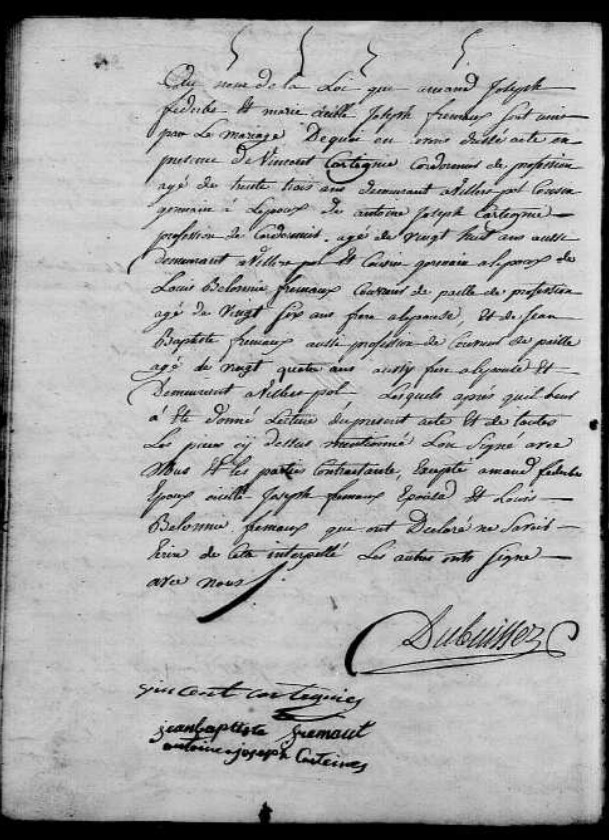 Au nom de la Loi que amand Joseph
federbe Et marie Cécille Joseph fremaux Sont unis
par Le mariage De quoi en avons dressé acte en
presence De Vincent Carteignie Cordonnier de profession
agé de trente trois ans demeurant a Villers-pol Cousin
germain à Lepoux de antoine Joseph Carteignie
profession de Cordonnier. agé de vingt huit ans aussi
Demeurant a Villers pol Et Cousin germain a lepoux de
Louis Belonnie fremaux Couvreur de paille de profession
agé de Vingt Six ans frere a lepouse, Et de Jean
Baptiste fremaux aussi profession de Couvreur de paille
agé de vingt quatre ans aussy frere a lepouse Et
Demeurent a Villers pol Lesquels après qu'il leur
à Eté donné Lecture du present acte Et de toutes
Les pieces cy dessus mentionné Lon Signé avec
Nous Et les parties Contractante, Excepté amand federbe
Epoux Cécille Joseph fremaux Epouse Et Louis
Belonnie fremaux qui ont Declaré ne Savoir
Ecrire de Cette interpellé Les autres ont Signé
avec nous
Dubuisson
vincent cartegnies
jean baptiste fremaut
antoine joseph Carteines